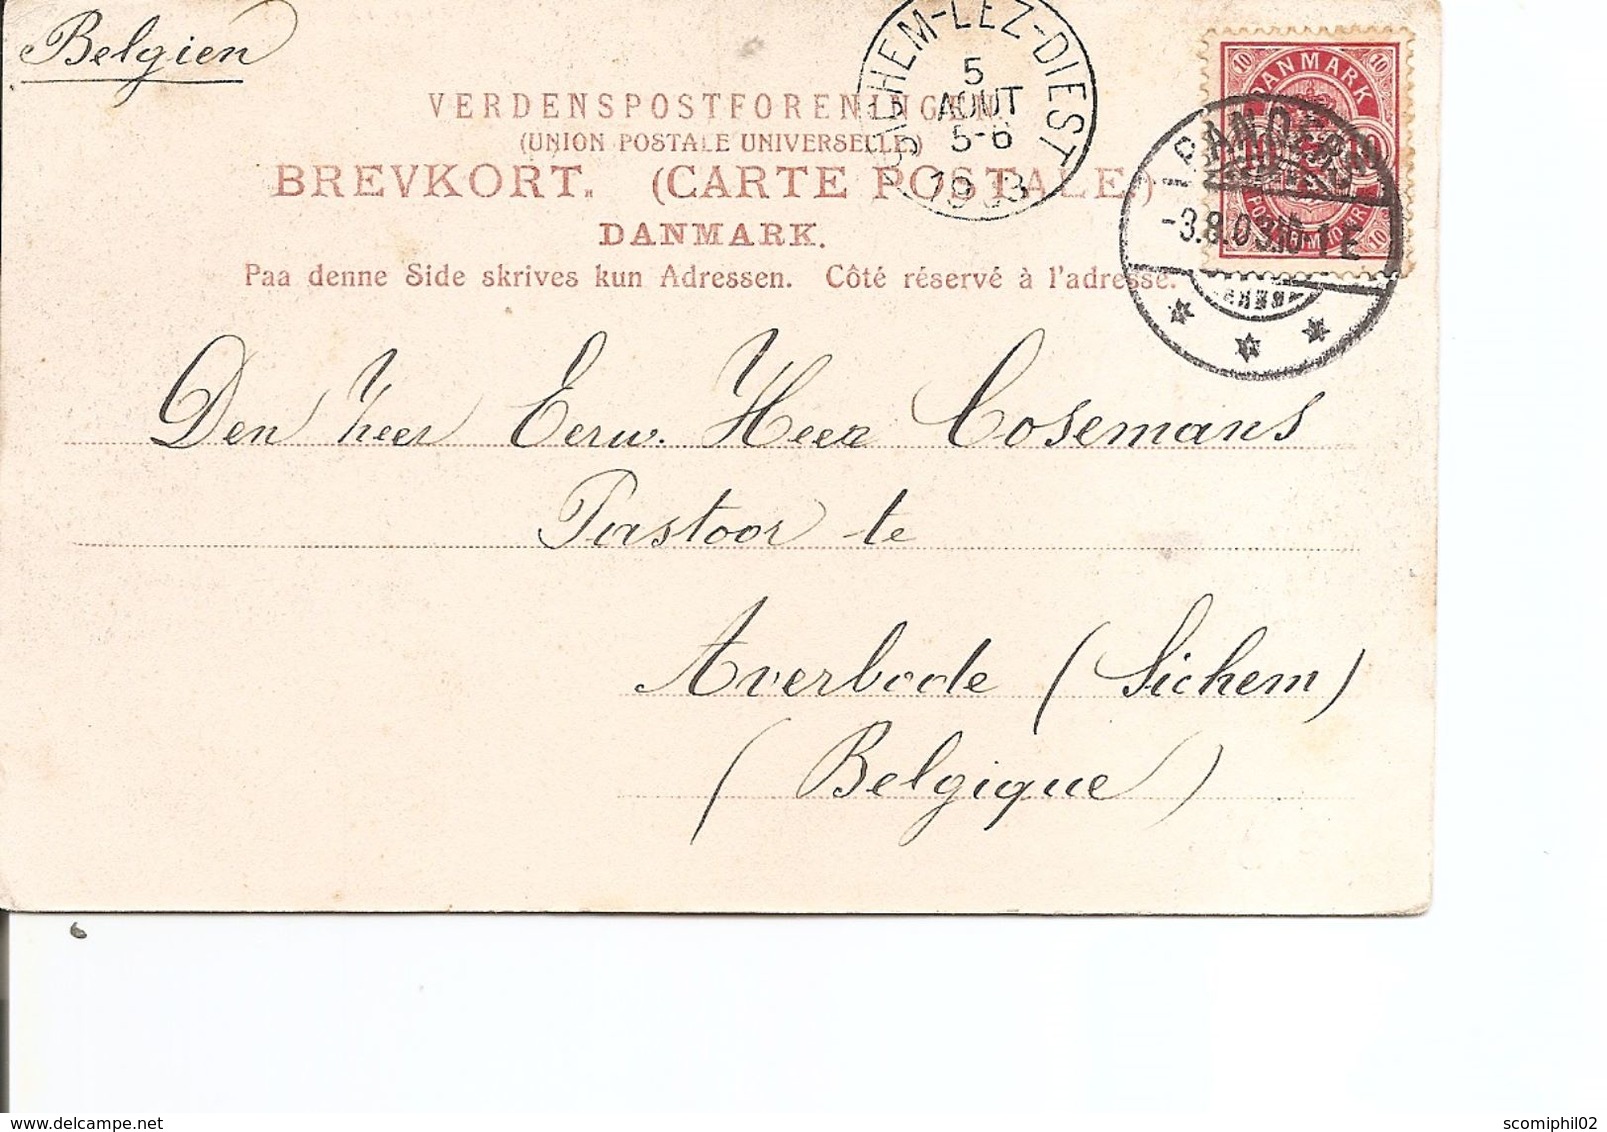 Belgien
VERDENSPOSTFORENINGEN.
(UNION POSTALE UNIVERSELLE)
BREVKORT. (CARTE POSTALE)
DANMARK.
Paa denne Side skrives kun Adressen. Côté réservé à l'adresse.
SICHEM-LEZ-DIEST
5
AOUT
5-6
1903
10 DANMARK 10
10 10
RANDERS
-3.8.03
Den heer Eerw. Heer Cosemans
Pastoor te
Averbode (Sichem)
(Belgique)
scomiphil02